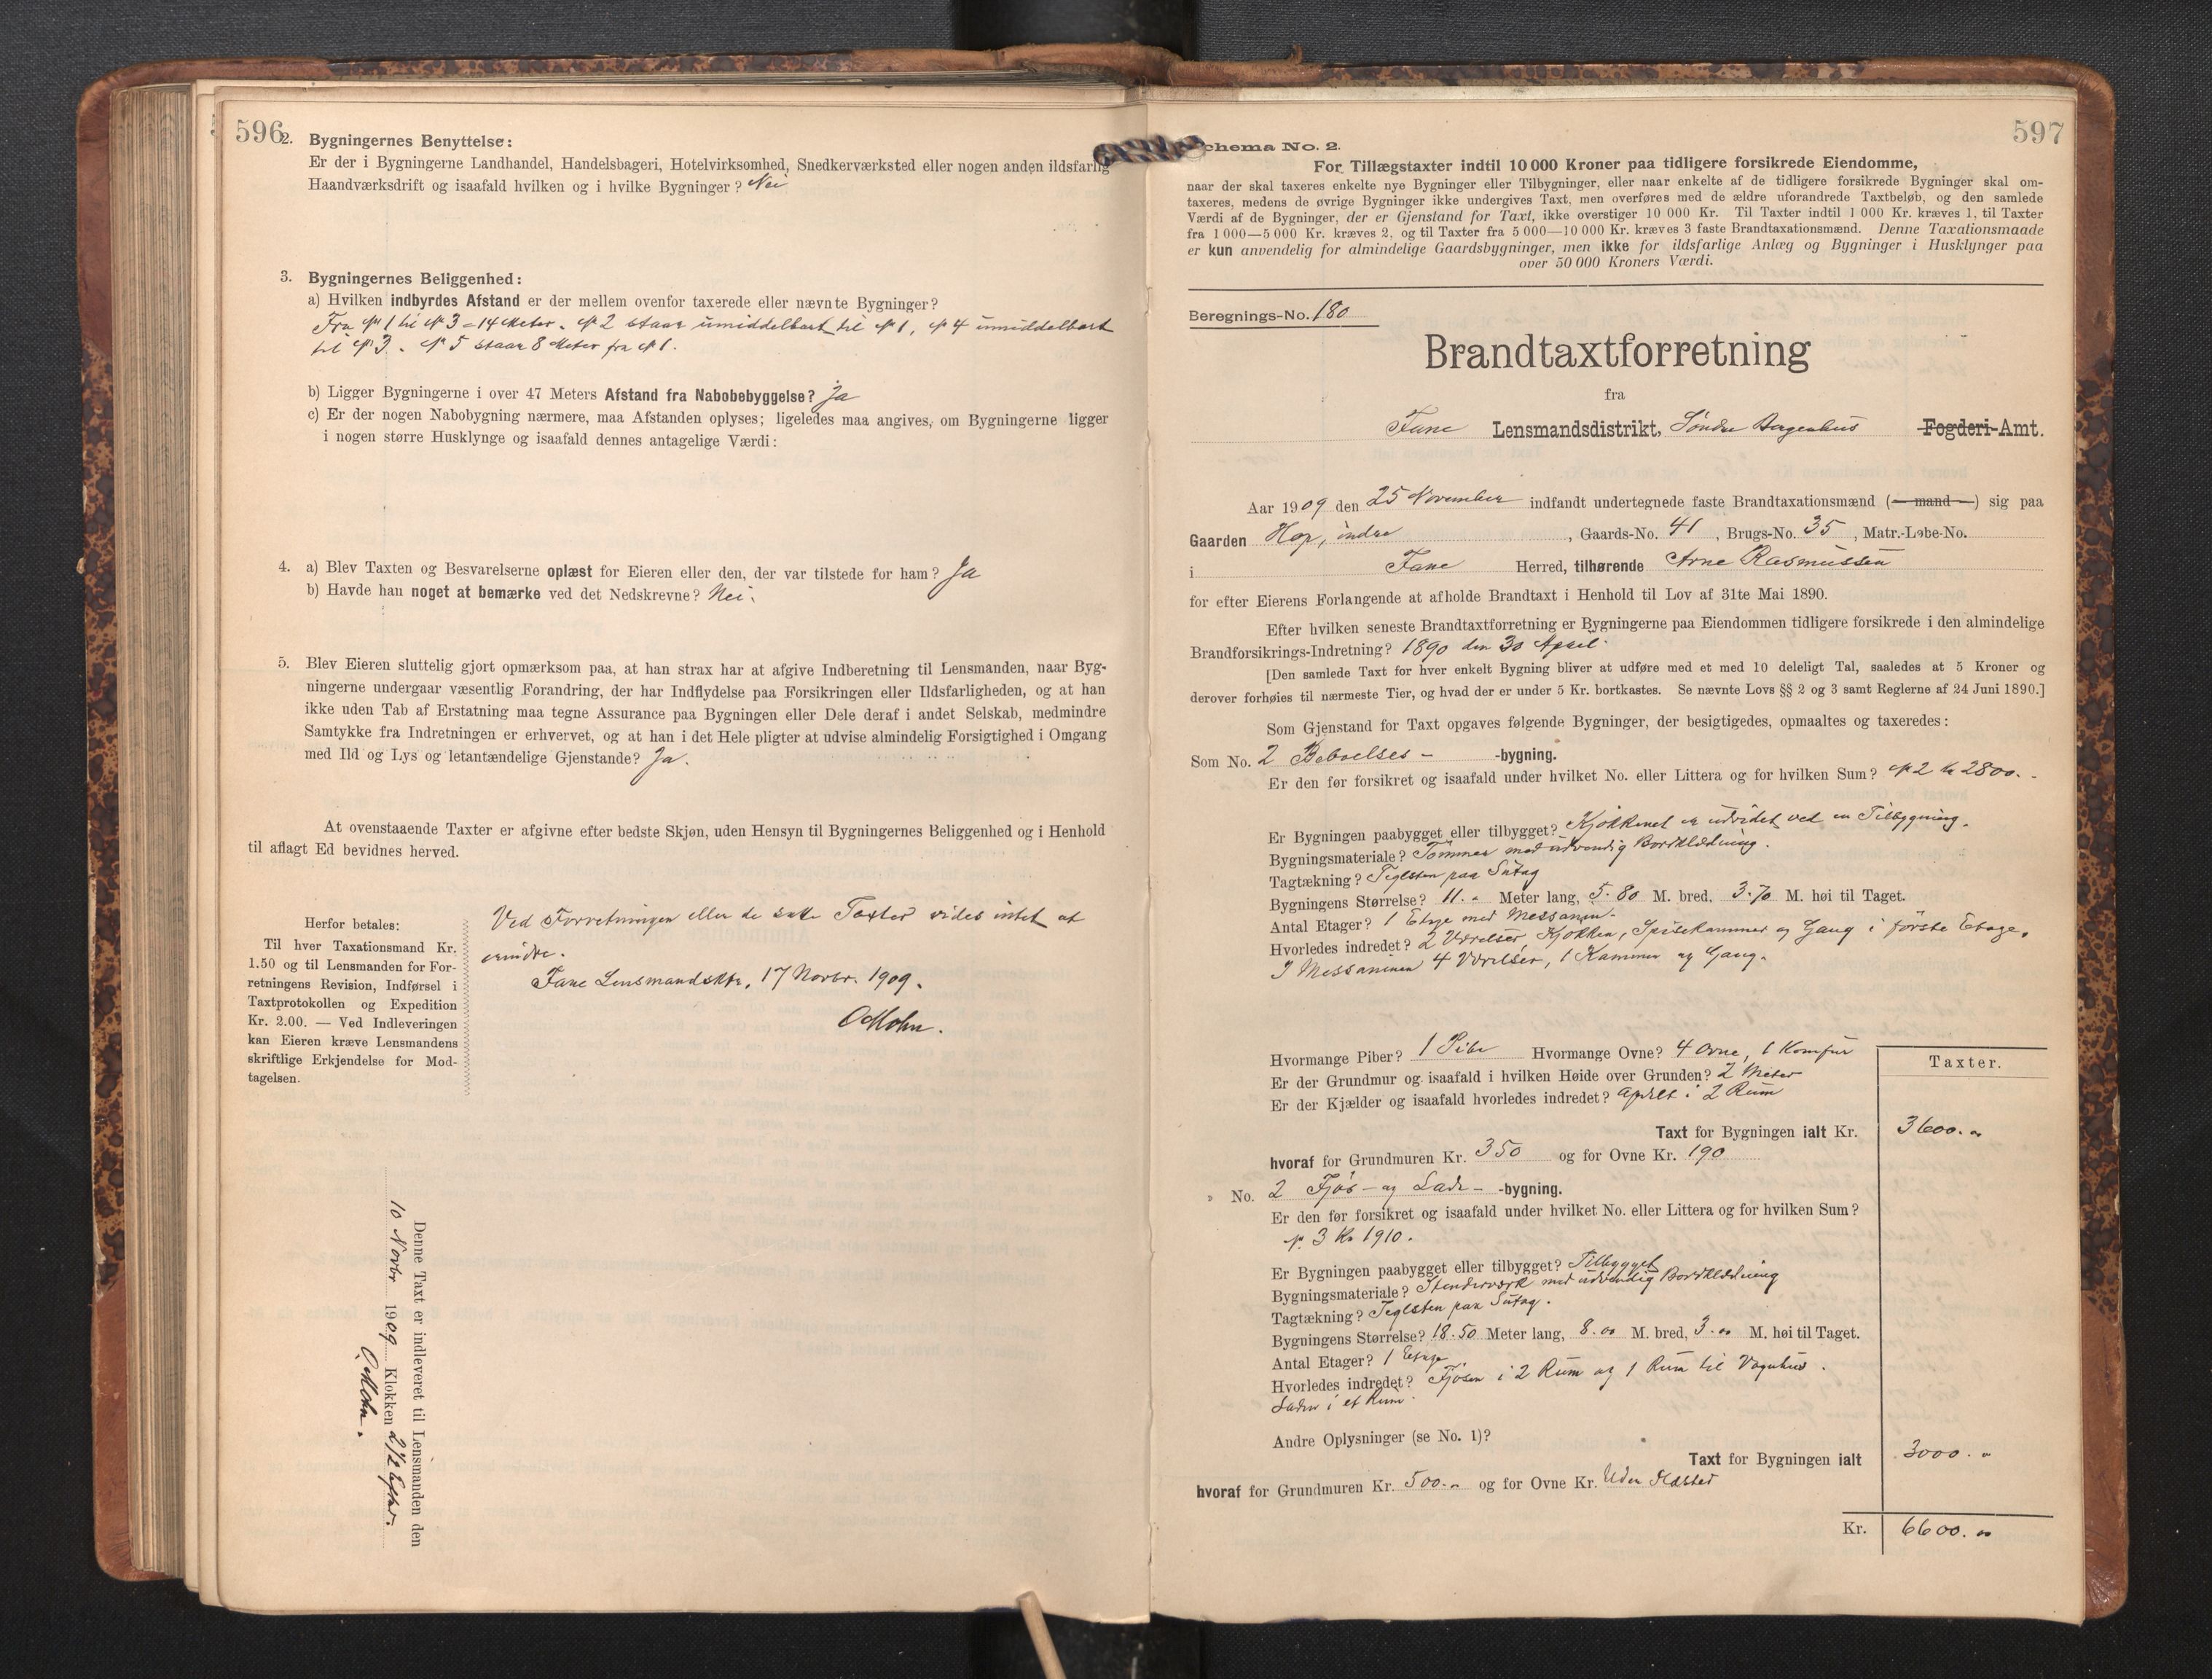 596
2. Bygningernes Benyttelse:
Er der i Bygningerne Landhandel, Handelsbageri, Hotelvirksomhed, Snedkerværksted eller nogen anden ildsfarlig
Haandværksdrift og isaafald hvilken og i hvilke Bygninger? Nei
3. Bygningernes Beliggenhed:
a) Hvilken indbyrdes Afstand er der mellem ovenfor taxerede eller nævnte Bygninger?
Fra № 1 til № 3 = 14 Meter. № 2 staar umiddelbart til № 1, № 4 umiddelbart
til № 3. № 5 staar 8 Meter fra № 1.
b) Ligger Bygningerne i over 47 Meters Afstand fra Nabobebyggelse? Ja
c) Er der nogen Nabobygning nærmere, maa Afstanden oplyses; ligeledes maa angives, om Bygningerne ligger
i nogen større Husklynge og isaafald dennes antagelige Værdi:
4. a) Blev Taxten og Besvarelserne oplæst for Eieren eller den, der var tilstede for ham? Ja
b) Havde han noget at bemærke ved det Nedskrevne? Nei.
5. Blev Eieren sluttelig gjort opmærksom paa, at han strax har at afgive Indberetning til Lensmanden, naar Byg-
ningerne undergaar væsentlig Forandring, der har Indflydelse paa Forsikringen eller Ildsfarligheden, og at han
ikke uden Tab af Erstatning maa tegne Assurance paa Bygningen eller Dele deraf i andet Selskab, medmindre
Samtykke fra Indretningen er erhvervet, og at han i det Hele pligter at udvise almindelig Forsigtighed i Omgang
med Ild og Lys og letantændelige Gjenstande? Ja.
At ovenstaaende Taxter er afgivne efter bedste Skjøn, uden Hensyn til Bygningernes Beliggenhed og i Henhold
til aflagt Ed bevidnes herved.
Herfor betales:
Til hver Taxationsmand Kr.
1.50 og til Lensmanden for For-
retningens Revision, Indførsel i
Taxtprotokollen og Expedition
Kr. 2.00. — Ved Indleveringen
kan Eieren kræve Lensmandens
skriftlige Erkjendelse for Mod-
tagelsen.
Ved Forretningen eller de satte Taxter vides intet at
erindre.
Fane Lensmandsktr. 17 Novbr. 1909.
O Mohn.
Denne Taxt er indleveret til Lensmanden den
10 Novbr 1909 Klokken 2 1/2 Efter.
O Mohn.
597
Schema No. 2.
For Tillægstaxter indtil 10 000 Kroner paa tidligere forsikrede Eiendomme,
naar der skal taxeres enkelte nye Bygninger eller Tilbygninger, eller naar enkelte af de tidligere forsikrede Bygninger skal om-
taxeres, medens de øvrige Bygninger ikke undergives Taxt, men overføres med de ældre uforandrede Taxtbeløb, og den samlede
Værdi af de Bygninger, der er Gjenstand for Taxt, ikke overstiger 10 000 Kr. Til Taxter indtil 1 000 Kr. kræves 1, til Taxter
fra 1 000—5 000 Kr. kræves 2, og til Taxter fra 5 000—10 000 Kr. kræves 3 faste Brandtaxationsmænd. Denne Taxationsmaade
er kun anvendelig for almindelige Gaardsbygninger, men ikke for ildsfarlige Anlæg og Bygninger i Husklynger paa
over 50 000 Kroners Værdi.
Beregnings-No. 180
Brandtaxtforretning
fra
Fane Lensmandsdistrikt, Søndre Bergenhus Fogderi-Amt.
Aar 1909 den 25 November indfandt undertegnede faste Brandtaxationsmænd (— mand —) sig paa
Gaarden Hop, indre, Gaards-No. 41, Brugs-No. 35, Matr.-Løbe-No.
i Fane Herred, tilhørende Arne Rasmussen
for efter Eierens Forlangende at afholde Brandtaxt i Henhold til Lov af 31te Mai 1890.
Efter hvilken seneste Brandtaxtforretning er Bygningerne paa Eiendommen tidligere forsikrede i den almindelige
Brandforsikrings-Indretning? 1890 den 30 April.
[Den samlede Taxt for hver enkelt Bygning bliver at udføre med et med 10 deleligt Tal, saaledes at 5 Kroner og
derover forhøies til nærmeste Tier, og hvad der er under 5 Kr. bortkastes. Se nævnte Lovs §§ 2 og 3 samt Reglerne af 24 Juni 1890.]
Som Gjenstand for Taxt opgaves følgende Bygninger, der besigtigedes, opmaaltes og taxeredes:
Som No. 2 Beboelses- -bygning.
Er den før forsikret og isaafald under hvilket No. eller Littera og for hvilken Sum? № 2 kr 2800.-
Er Bygningen paabygget eller tilbygget? Kjøkkenet er udvidet ved en Tilbygning.
Bygningsmateriale? Tømmer med udvendig Bordklædning.
Tagtækning? Teglsten paa Sutag
Bygningens Størrelse? 11.- Meter lang, 5.80 M. bred, 3.70 M. høi til Taget.
Antal Etager? 1 Etage med Messanin.
Hvorledes indredet? 2 Værelser, Kjøkken, Spisekammer og Gang i første Etage.
I Messaninen 4 Værelser, 1 Kammer og Gang.
Hvormange Piber? 1 Pibe Hvormange Ovne? 4 Ovne, 1 Komfur
Er der Grundmur og isaafald i hvilken Høide over Grunden? 2 Meter
Er der Kjælder og isaafald hvorledes indredet? apdelt i 2 Rum
Taxter.
Taxt for Bygningen ialt Kr. 3600.-
hvoraf for Grundmuren Kr. 350 og for Ovne Kr. 190
" No. 2 Fjøs- og Lade- -bygning.
Er den før forsikret og isaafald under hvilket No. eller Littera og for hvilken Sum?
№ 3 Kr 1910.
Er Bygningen paabygget eller tilbygget? Tilbygget
Bygningsmateriale? Stenderværk med udvendig Bordklædning
Tagtækning? Teglsten paa Sutag.
Bygningens Størrelse? 18.50 Meter lang, 8.00 M. bred, 3.00 M. høi til Taget.
Antal Etager? 1 Etage.
Hvorledes indredet? Fjøsen i 2 Rum og 1 Rum til Vognhus.
Laden i et Rum.
Andre Oplysninger (se No. 1)?
Taxt for Bygningen ialt 3000.-
hvoraf for Grundmuren Kr. 500.- og for Ovne Kr. Uden Ildsted
Kr. 6600.-